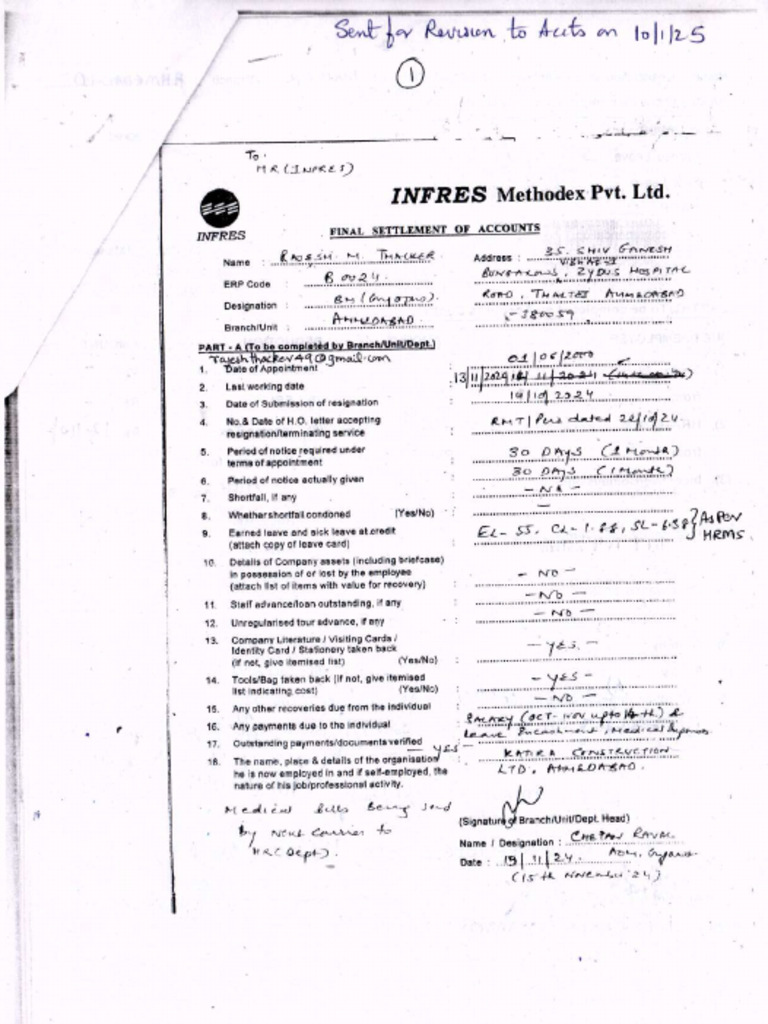 Sent for Revision to Accts on 10/1/25
1
To.
HR (INFRES)
INFRES Methodex Pvt. Ltd.
INFRES
FINAL SETTLEMENT OF ACCOUNTS
Name : M. THACKER
Address : 35, SHIV GANESH
BUNGALOWS, ZYDUS HOSPITAL
ERP Code : B 0024
ROAD, THALTEJ AHMEDABAD
Designation : BM
- 380059
Branch/Unit : AHMEDABAD
PART - A (To be completed by Branch/Unit/Dept.)
rajeshthacker49@gmail.com
1. Date of Appointment : 01/06/2000
2. Last working date : 13/11/2024
3. Date of Submission of resignation : 19/10/2024
4. No.& Date of H.O. letter accepting
resignation/terminating service : RMT/Pers dated 22/10/24
5. Period of notice required under
terms of appointment : 30 DAYS (1 Month)
6. Period of notice actually given : 30 DAYS (1 Month)
7. Shortfall, if any : - NA -
8. Whether shortfall condoned (Yes/No) : -
9. Earned leave and sick leave at credit
(attach copy of leave card) : EL- 55, CL- 1.88, SL- 6.38 } As Per
HRMS
10. Details of Company assets (including briefcase)
in possession of or lost by the employee
(attach list of items with value for recovery) : - NO -
11. Staff advance/loan outstanding, if any : - NO -
12. Unregularised tour advance, if any : - NO -
13. Company Literature / Visiting Cards /
Identity Card / Stationery taken back
(if not, give itemised list) (Yes/No) : - YES -
14. Tools/Bag taken back (if not, give itemised
list indicating cost) (Yes/No) : - YES -
15. Any other recoveries due from the individual : - NO -
16. Any payments due to the individual : SALARY (OCT- NOV upto th) &
Leave Encashment, Medical Expenses
17. Outstanding payments/documents verified - YES -
18. The name, place & details of the organisation
he is now employed in and if self-employed, the
nature of his job/professional activity. : KATIRA CONSTRUCTION
LTD, AHMEDABAD.
Medical bills being send
by next courier to
HR (Dept).
(Signature of Branch/Unit/Dept. Head)
Name / Designation : CHETAN RAVAL
Date : 15/11/24
(15th NOVEMBER 24)